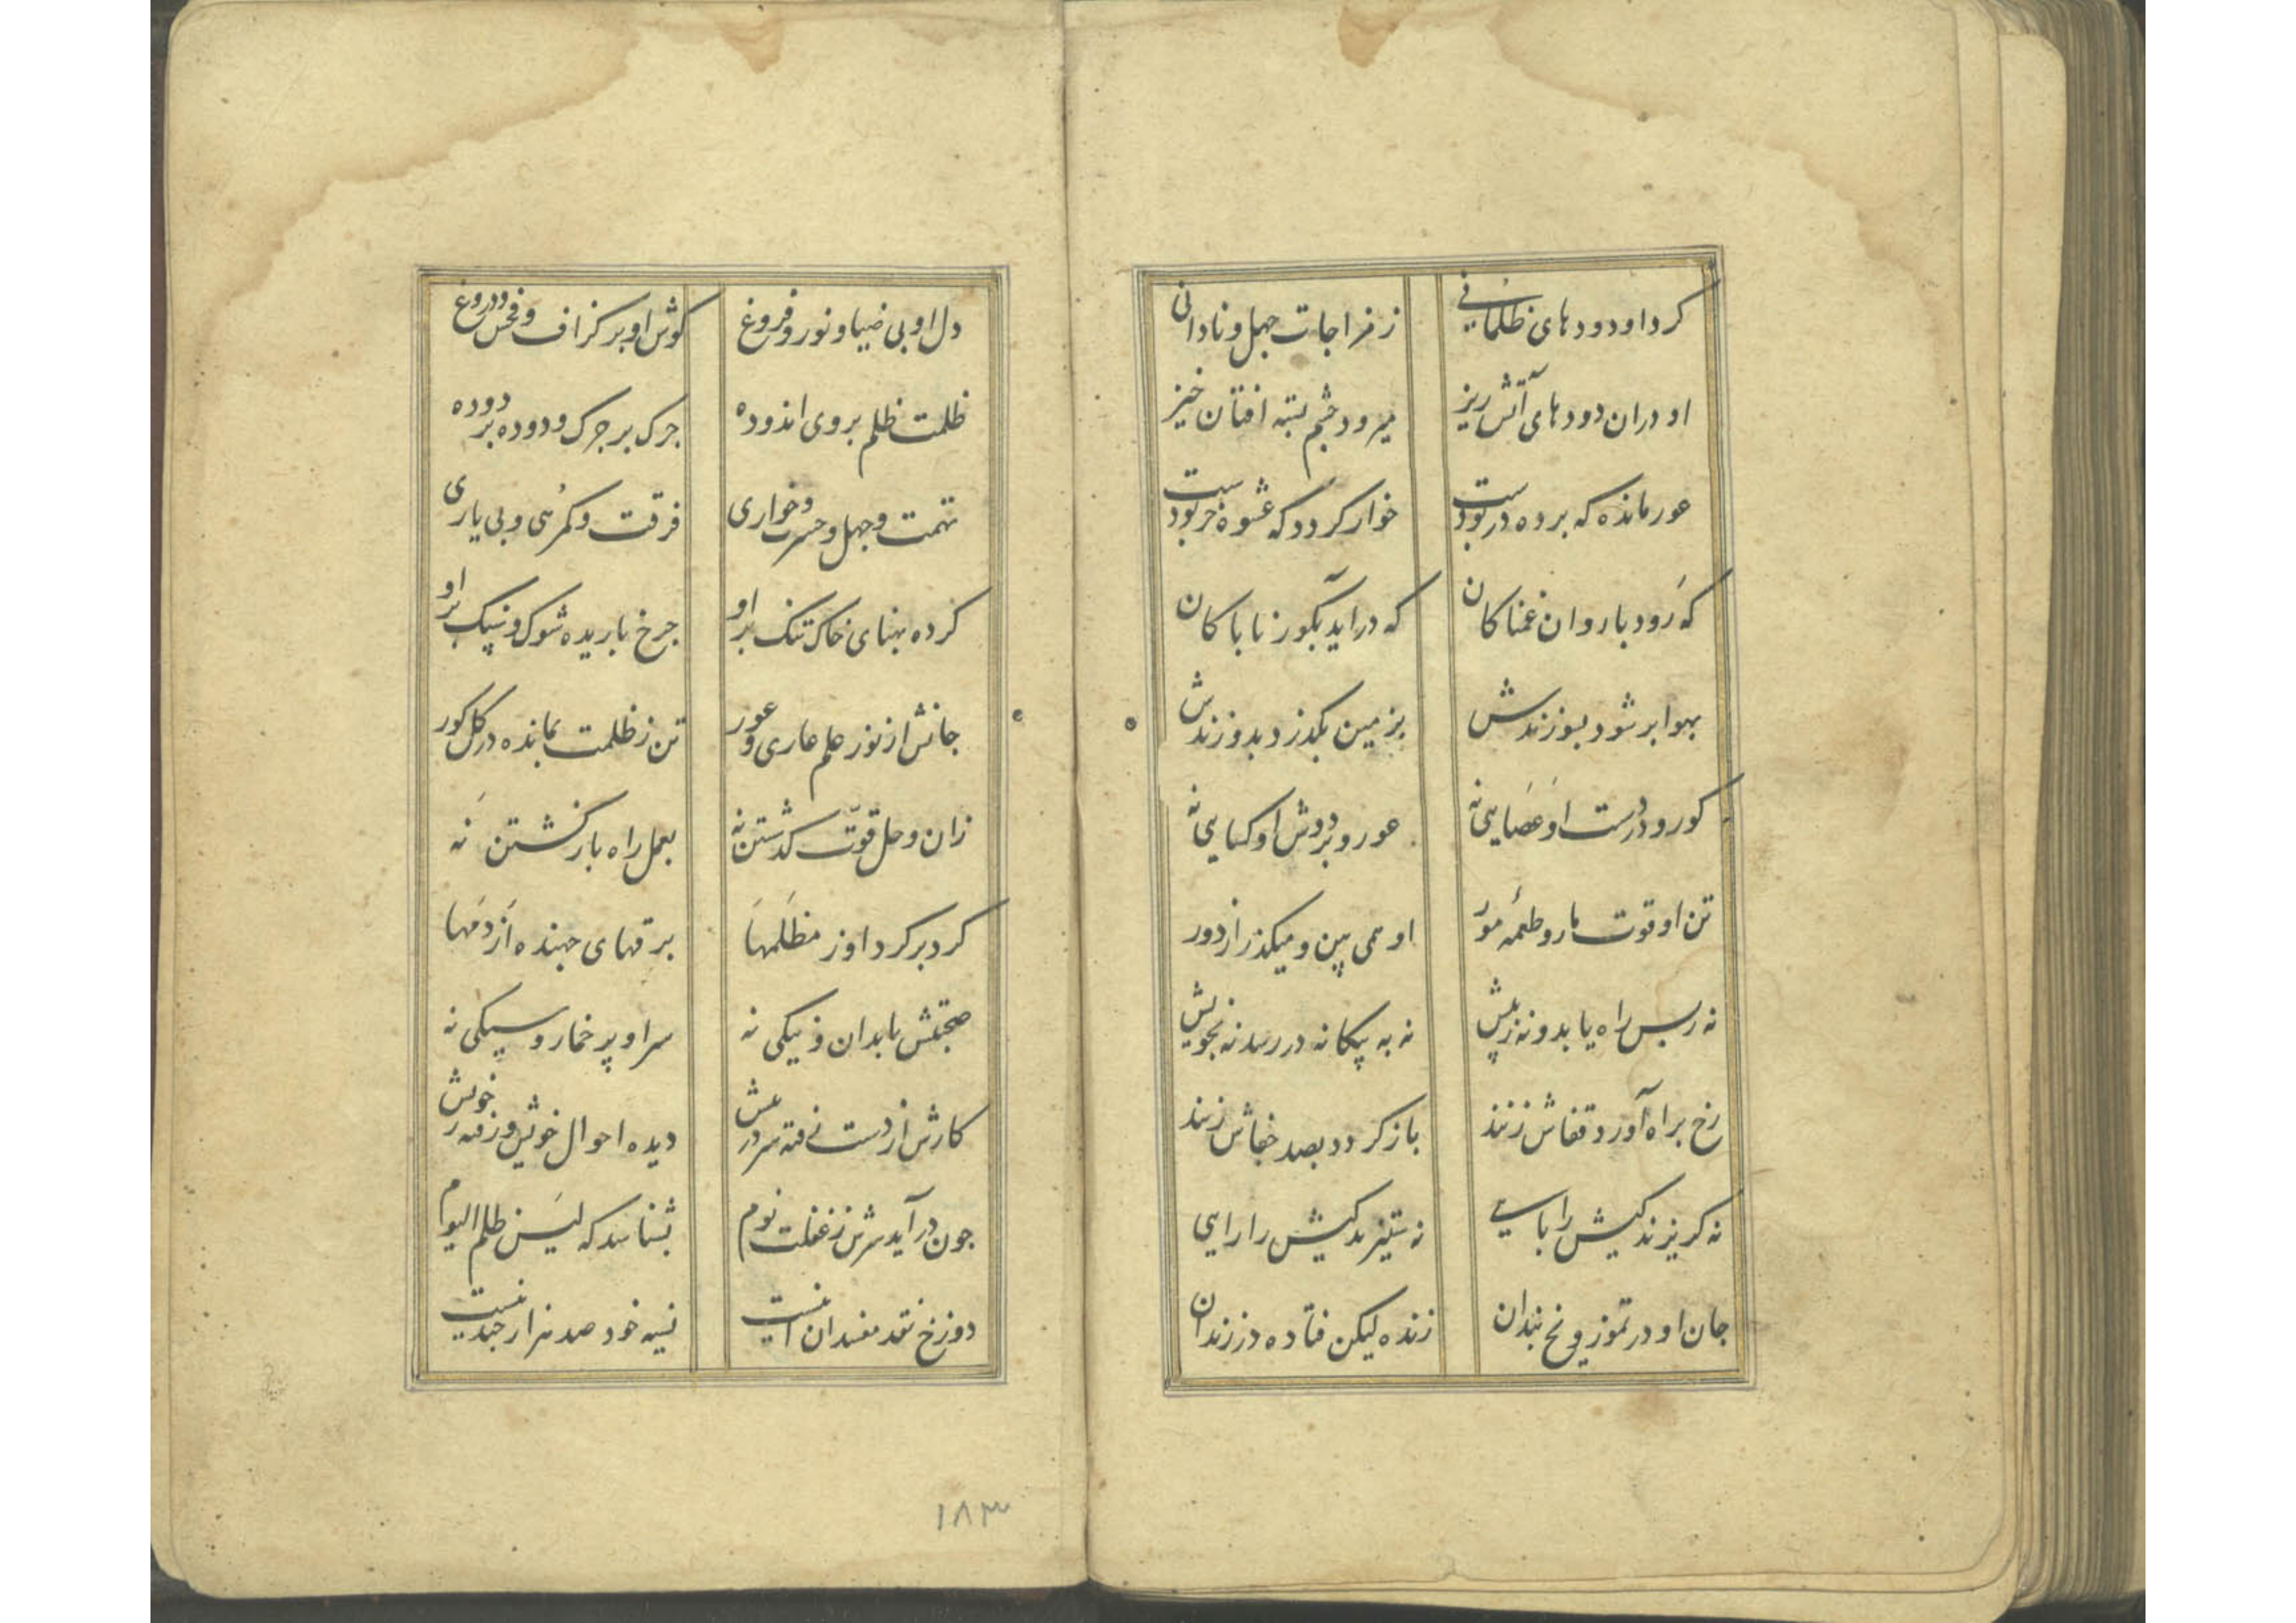 کرد او دودهای ظلمانی ز مزاجات جهل و نادانی
او دران دودهای آتش ریز میرود چشم بسته افتان خیز
عور مانده که برده در بودست خوار کردد که عشوه خر بودست
که رود با روان غمناکان که در آید بکور ناباکان
بهوا بر شود بسوزندش بزمین بکذرد بدوزندش
کور و در دست او عصایی نه عور و بر دوش او کسایی نه
تن او قوت مار و طعمهٔ مور او همی بین و میکذر از دور
نه ز بس راه یابد و نه ز پیش نه به پیکانه در رسد نه بخویش
رخ براه آورد قفاش زنند باز کردد بصد خفاش زنند
نه کریزند کیش را بایی نه ستیزند کیش را رایی
جان او در تموز و یخ بندان زنده لیکن فتاده در زندان
دل او بی ضیا و نور و فروغ کوش او بر کزاف و فحش و دروغ
ظلمت ظلم بروی اندوده جرک بر جرک و دوده بر دوده
تهمت و جهل و حسرت و خواری فرقت و کمرهی و بی یاری
کرده بهنای خاک تنک برو جرخ باریده شوک و سنک برو
جانش از نور علم عاری و عور تن ز ظلمت بمانده در کل کور
زان وحل قوت کذشتن نه بعمل راه بازکشتن نه
کرد بر کرد او ز مظلمها برقهای جهنده از دمها
صحبتش با بدان و نیکی نه سر او پر خمار و سیکی نه
کارش از دست رفته سر در پیش دیده احوال خویش و رفته ز خویش
جون در آید سرش ز غفلت نوم بشناسد که لیس ظلم الیوم
دوزخ نقد مفسدان اینست نسیه خود صد هزار جندینست
۱۸۳